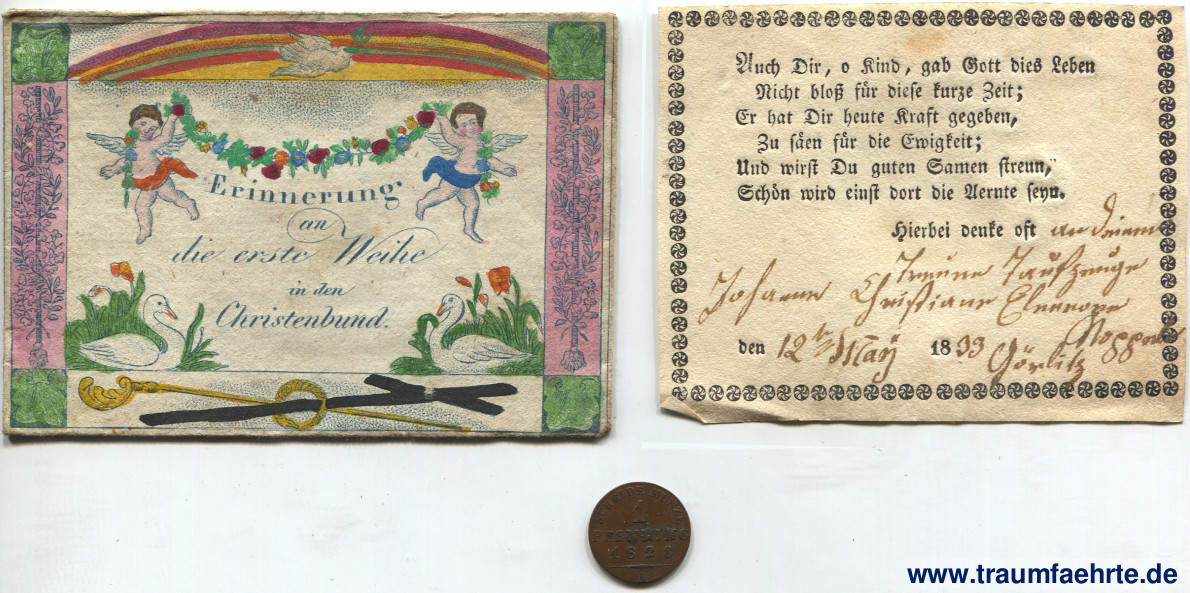 Erinnerung
an
die erste Weihe
in den
Christenbund.
Auch Dir, o Kind, gab Gott dies Leben
Nicht bloß für diese kurze Zeit;
Er hat Dir heute Kraft gegeben,
Zu säen für die Ewigkeit;
Und wirst Du guten Samen streun,
Schön wird einst dort die Aernte seyn.
Hierbei denke oft an Deinen
Taufzeuge
Johanne Christiane
den 12t Maÿ 1833
Görlitz
1
PFENNING
1828
www.traumfaehrte.de